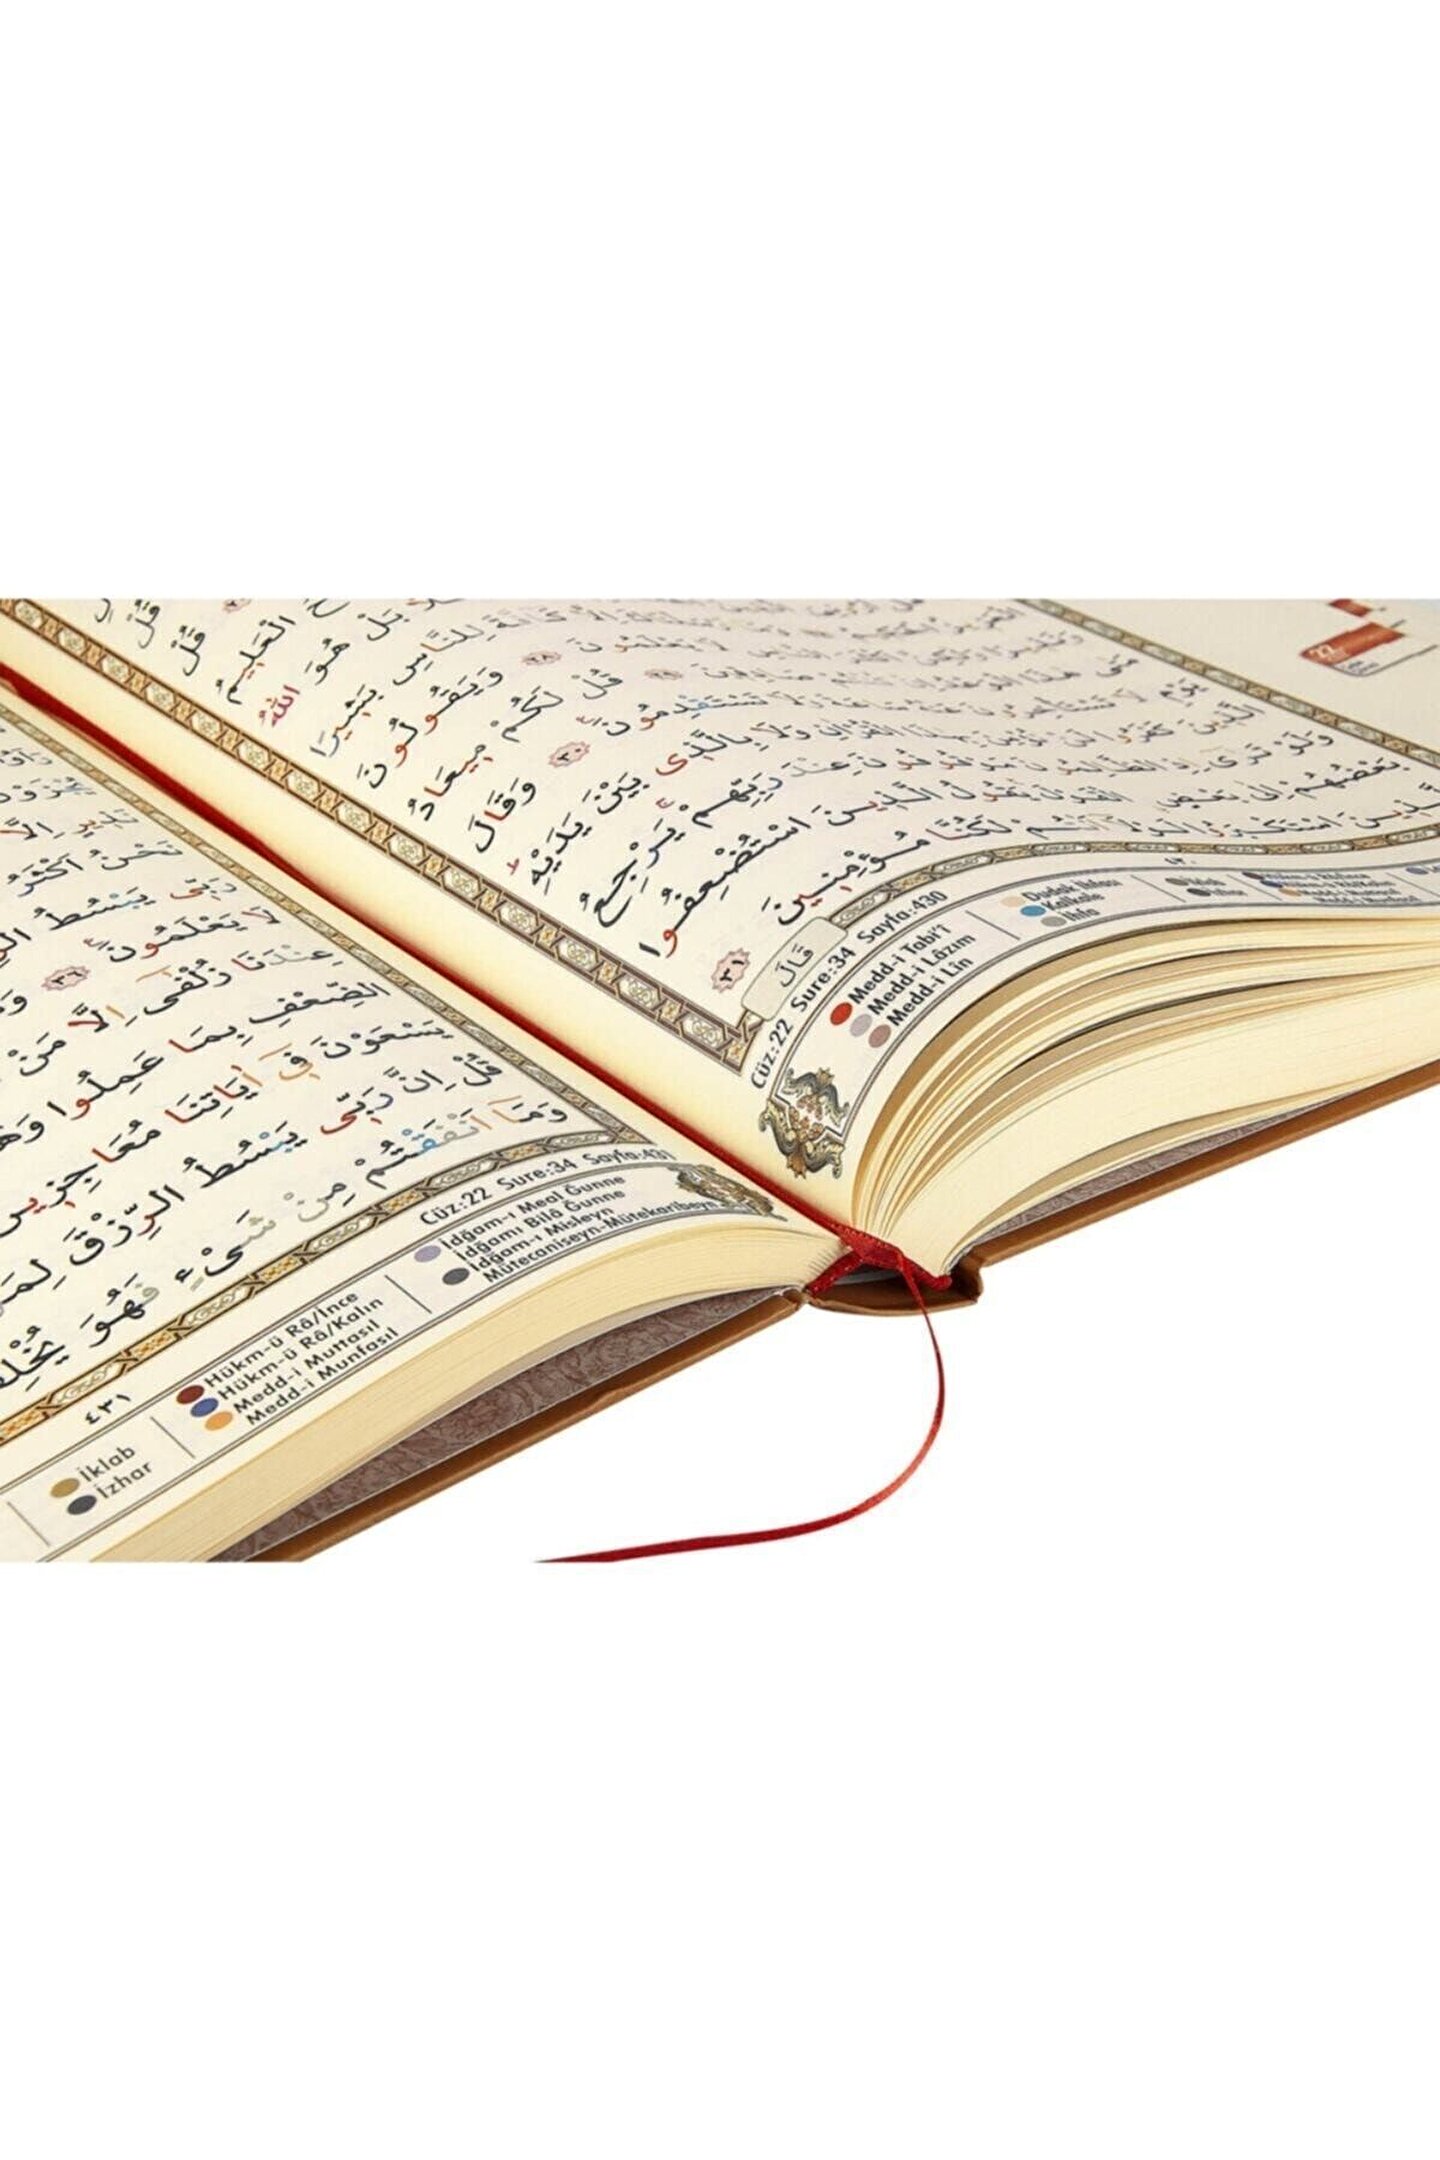 قُلْ
الْعَلِيمُ قُلْ
بَلْ هُوَ اللّٰهُ
الْعَزِيزُ الْحَكِيمُ اِلَّا كَٓافَّةً لِلنَّاسِ بَشِيرًا
وَنَذِيرًا وَلٰكِنَّ اَكْثَرَ النَّاسِ لَا يَعْلَمُونَ ٢٨ وَيَقُولُونَ
مَتٰى هٰذَا الْوَعْدُ اِنْ كُنْتُمْ صَادِقِينَ ٢٩ قُلْ لَكُمْ مِيعَادُ
يَوْمٍ لَا تَسْتَأْخِرُونَ عَنْهُ سَاعَةً وَلَا تَسْتَقْدِمُونَ ٣٠ وَقَالَ
الَّذِينَ كَفَرُوا لَنْ نُؤْمِنَ بِهٰذَا الْقُرْاٰنِ وَلَا بِالَّذِى بَيْنَ يَدَيْهِ
وَلَوْ تَرٰٓى اِذِ الظَّالِمُونَ مَوْقُوفُونَ عِنْدَ رَبِّهِمْ يَرْجِعُ
بَعْضُهُمْ اِلٰى بَعْضٍ الْقَوْلَ يَقُولُ الَّذِينَ اسْتُضْعِفُوا
لِلَّذِينَ اسْتَكْبَرُوا لَوْلَٓا اَنْتُمْ لَكُنَّا مُؤْمِنِينَ ٣١
قَالَ
٤٣٠
Cüz:22 Sure:34 Sayfa:430
Medd-i Tabi'î
Medd-i Lâzım
Medd-i Lîn
Dudak İhfası
Kalkale
İhfa
22
نَذِيرٍ اِلَّا
نَحْنُ اَكْثَرُ
رَبِّى يَبْسُطُ
لَا يَعْلَمُونَ ٣٦
عِنْدَنَا زُلْفٰٓى اِلَّا مَنْ
الضِّعْفِ بِمَا عَمِلُوا
يَسْعَوْنَ فِٓى اٰيَاتِنَا مُعَاجِزِينَ
قُلْ اِنَّ رَبِّى يَبْسُطُ الرِّزْقَ لِمَنْ
وَمَٓا اَنْفَقْتُمْ مِنْ شَىْءٍ فَهُوَ
٤٣١
Cüz:22 Sure:34 Sayfa:431
İdğam-ı Meal Ğunne
İdğamı Bilâ Ğunne
İdğam-ı Misleyn
Mütecaniseyn-Mütekaribeyn
Hükm-ü Râ/İnce
Hükm-ü Râ/Kalın
Medd-i Muttasıl
Medd-i Munfasıl
İklab
İzhar